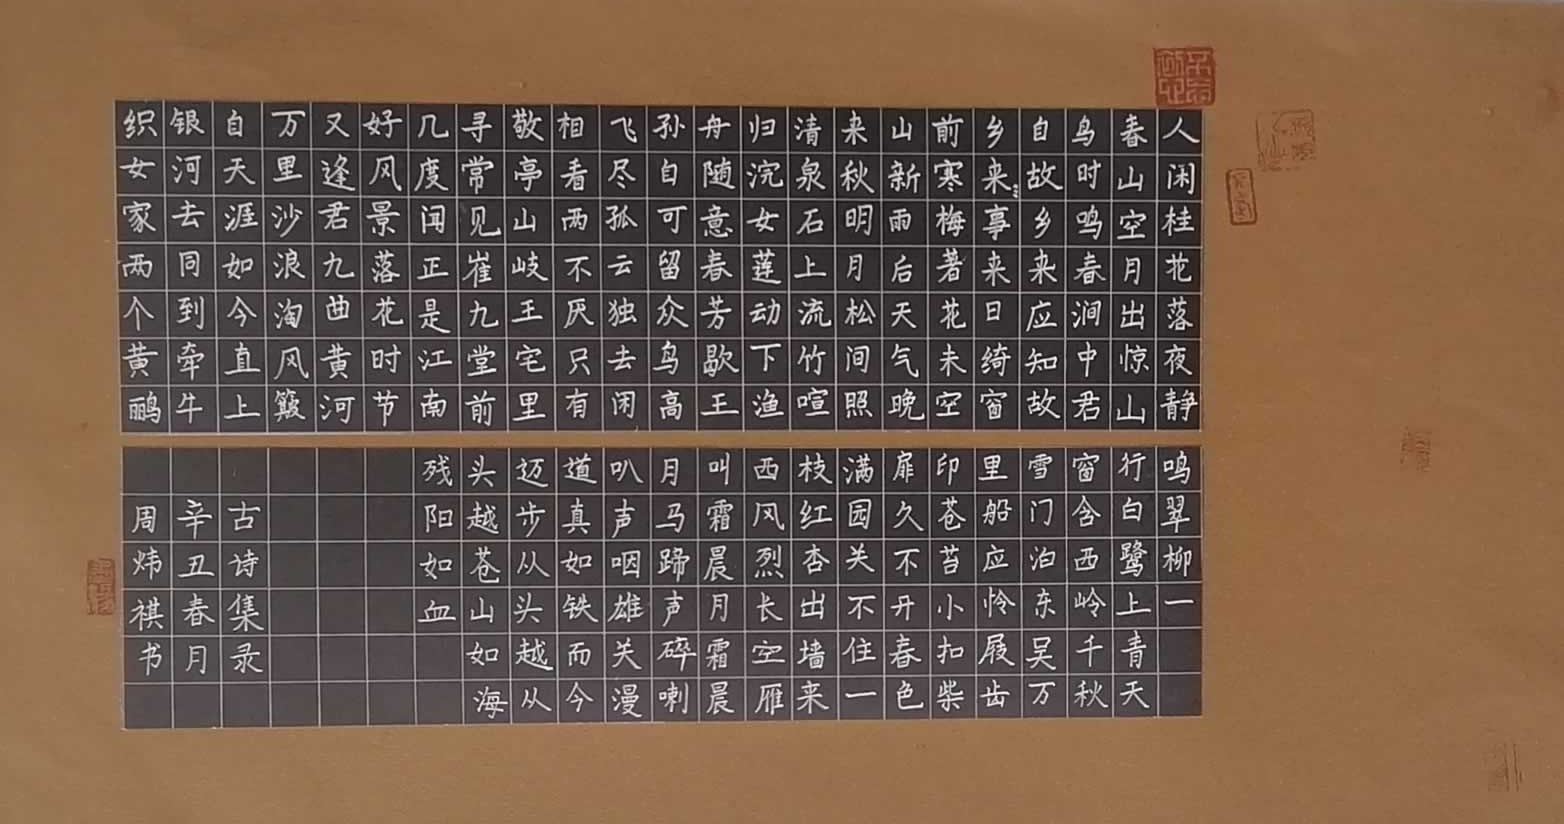 人闲桂花落夜静
春山空月出惊山
鸟时鸣春涧中君
自故乡来应知故
乡来事来日绮窗
前寒梅著花未空
山新雨后天气晚
来秋明月松间照
清泉石上流竹喧
归浣女莲动下渔
舟随意春芳歇王
孙自可留众鸟高
飞尽孤云独去闲
相看两不厌只有
敬亭山岐王宅里
寻常见崔九堂前
几度闻正是江南
好风景落花时节
又逢君九曲黄河
万里沙浪淘风簸
自天涯如今直上
银河去同到牵牛
织女家两个黄鹂
鸣翠柳一
行白鹭上青天
窗含西岭千秋
雪门泊东吴万
里船应怜屐齿
印苍苔小扣柴
扉久不开春色
满园关不住一
枝红杏出墙来
西风烈长空雁
叫霜晨月霜晨
月马蹄声碎喇
叭声咽雄关漫
道真如铁而今
迈步从头越从
头越苍山如海
残阳如血
古诗集录
辛丑春月
周炜祺书